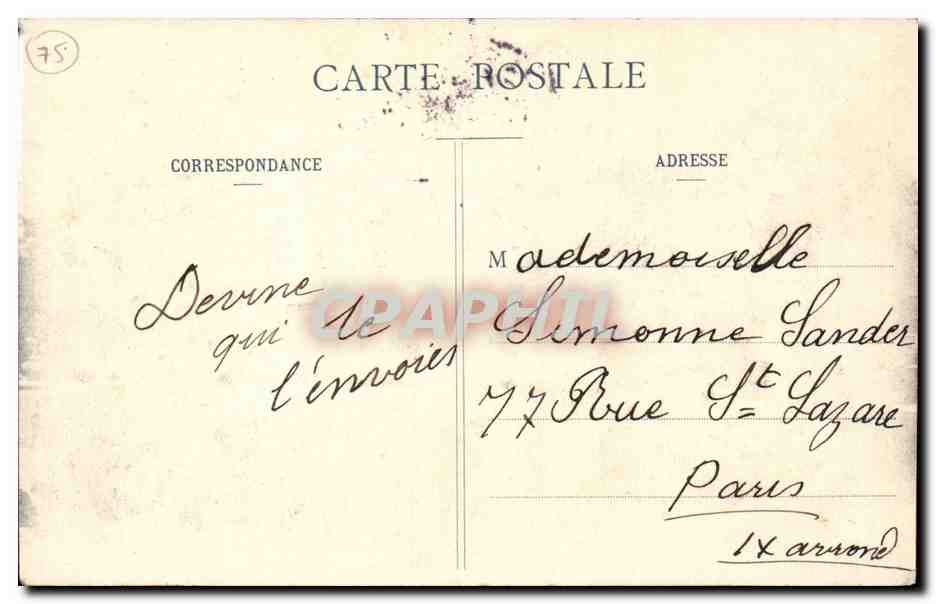 75
CARTE POSTALE
CORRESPONDANCE
ADRESSE
Devine
qui te
l'envoies
Mademoiselle
Simonne Sander
77 Rue St Lazare
Paris
IX arrond
CPAPHIL